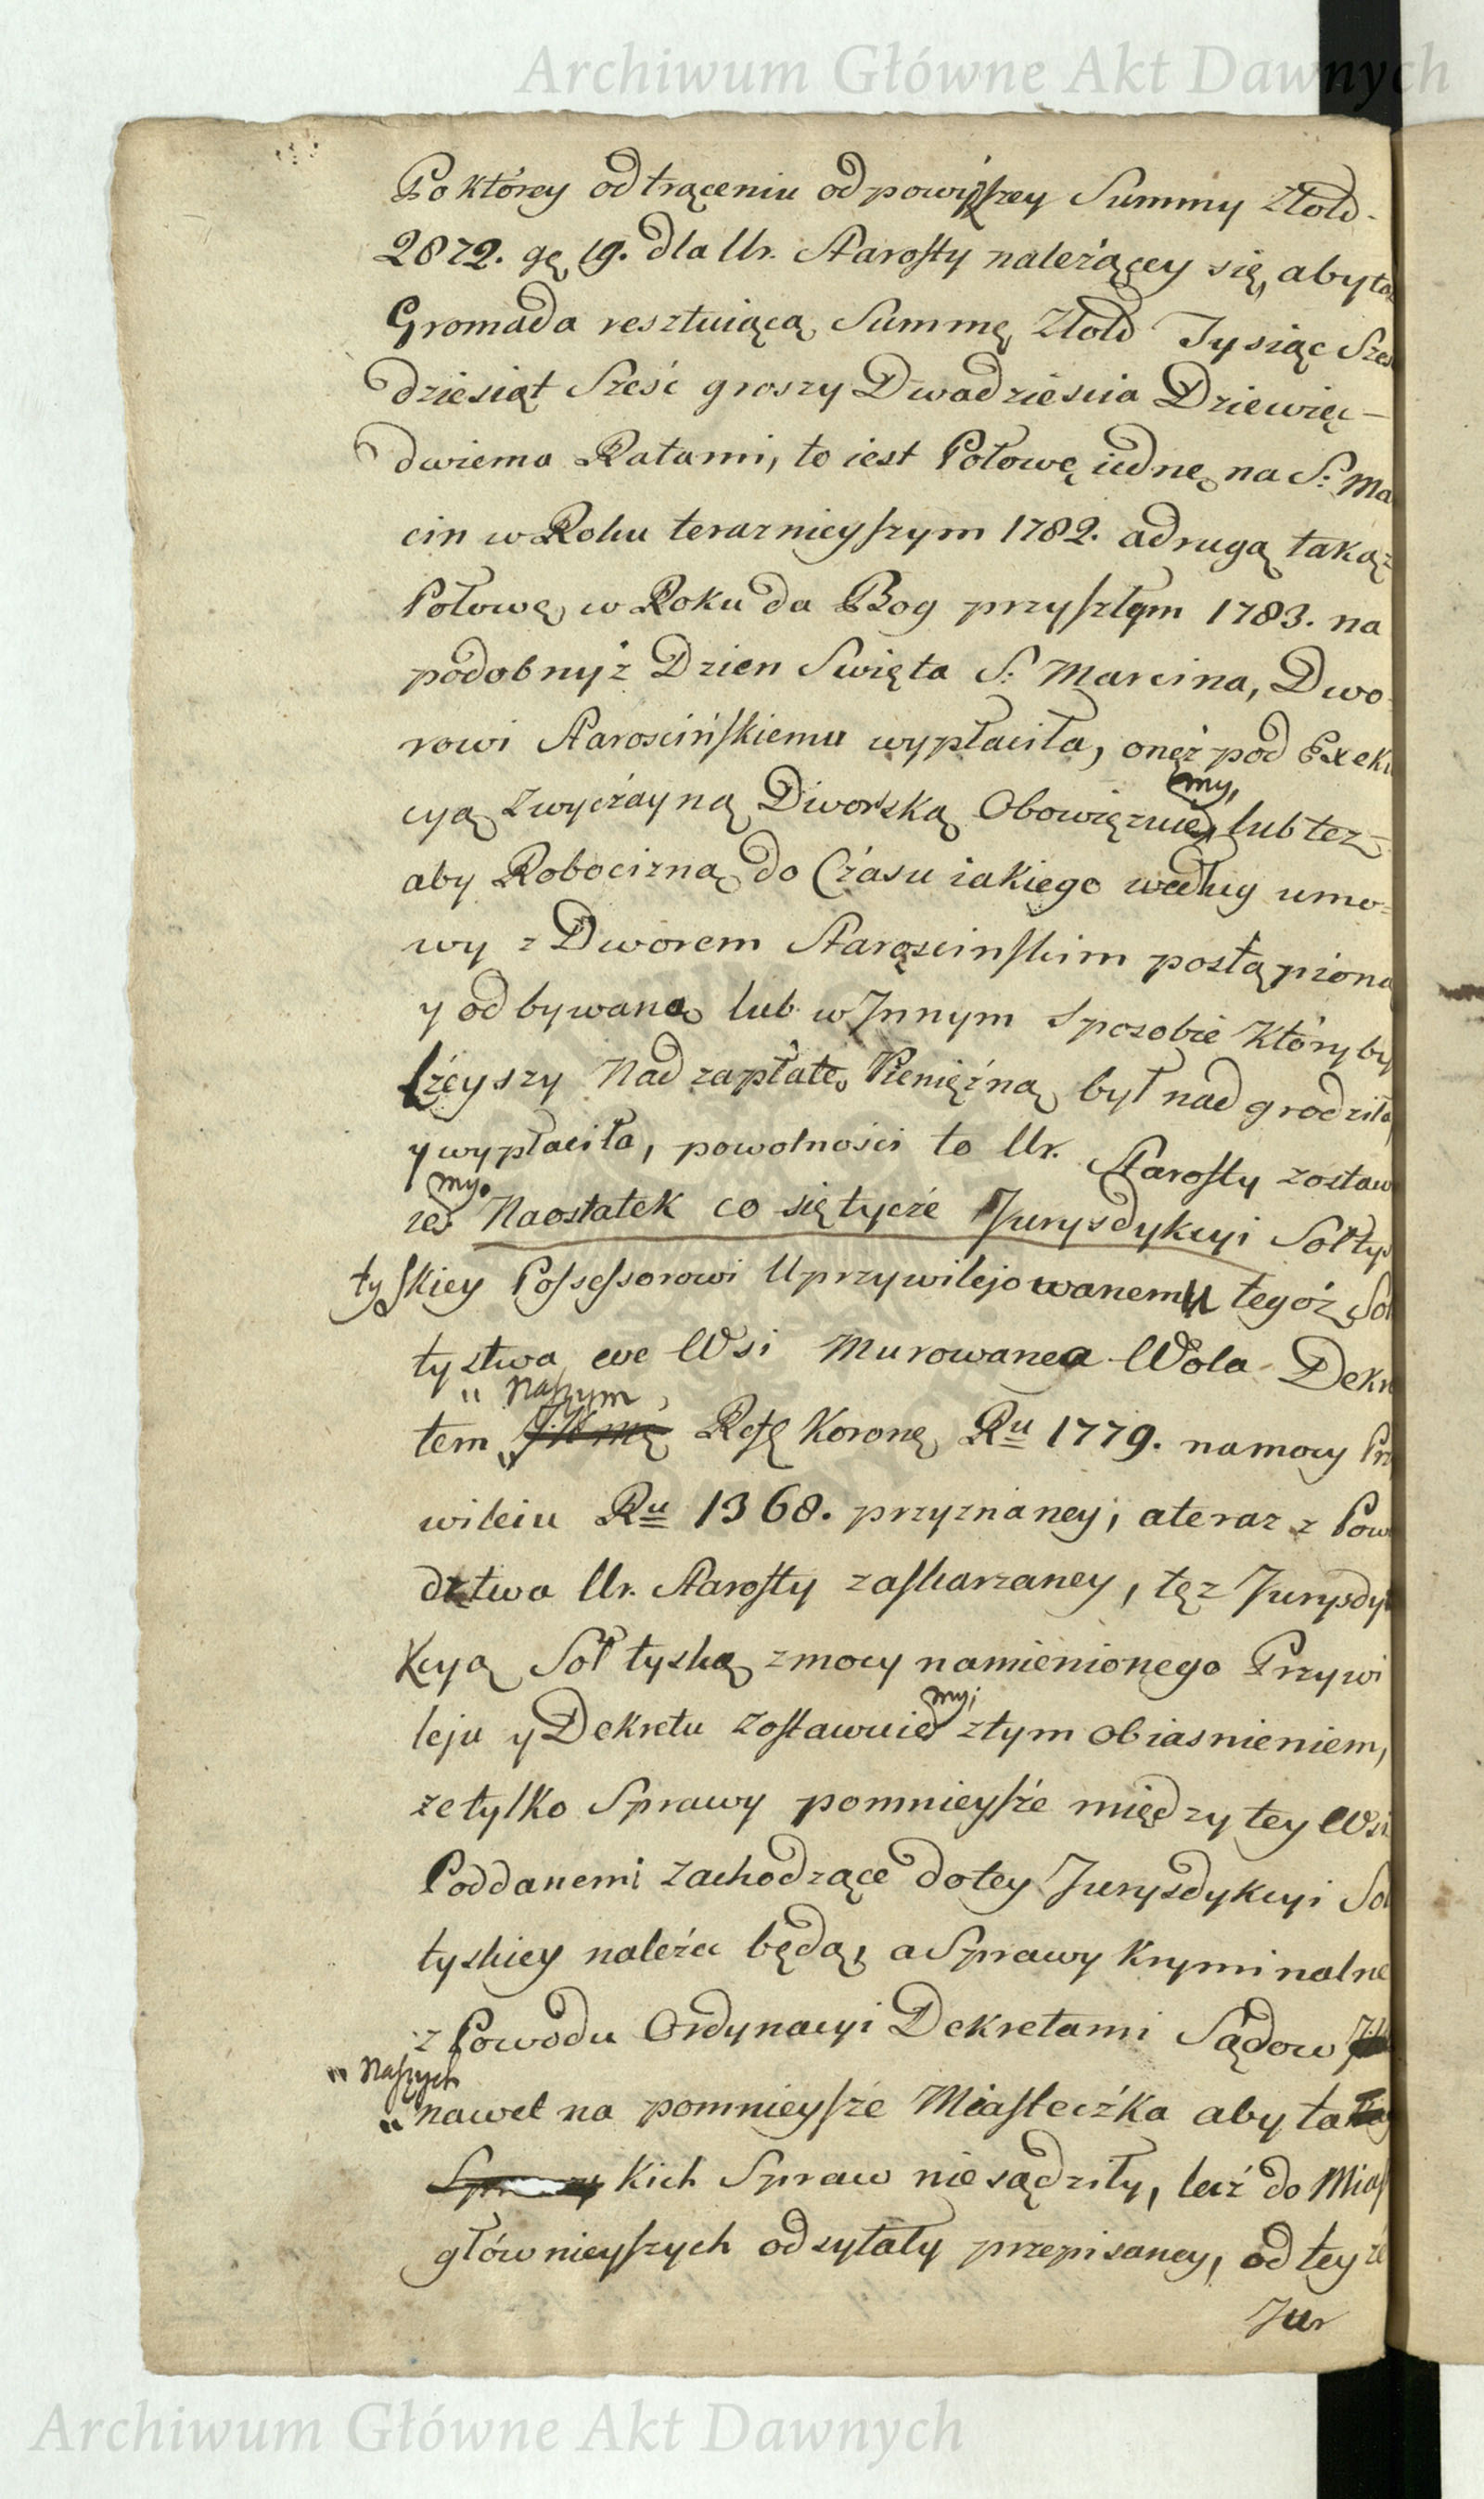 Archiwum Główne Akt Dawnych
Po którey odtrąceniu odpowyższey Summy Złotd.
2872. gę 19. dla Ur. Starosty należącey się, abyta
Gromada resztuiącą Summę Złotd Tysiąc Szes
dziesiąt Sześć groszy Dwadziescia Dziewięć
dwiema Ratami, to iest Połowę iednę na S: Ma
cin w Roku teraznieyszym 1782. adrugą takąż
Połowę w Roku da Bog przyszłym 1783. na
podobnyż Dzien Swięta S: Marcina, Dwo
rowi Starościńskiemu wypłaciła, onęż pod Exeku
cyą Zwyczayną Dworską Obowięzuie my, lub też
aby Robocizną do Czasu iakiego według umo=
wy z Dworem Staroscinskim postąpioną
y odbywaną lub w Jnnym Sposobie któryby
lżeyszy Nad zapłatę Pieniężną był nadgrodziła
y wypłaciła, powolności to Ur. Starosty zostaw
ie my. Naostatek co się tycże Jurysdykcyi Sołtys
tyskiey Possessorowi Uprzywilejowanemu tegoż Soł
tystwa we Wsi Murowanea Wola Dekre
tem " Naszym, J.K.Mę Refę Koronę Ru 1779. namocy Prz
wileiu Ru 1368. przyznaney, ateraz z Pow
dztwa Ur. Starosty zaskarzaney, tęz Jurysdy
Kcyą Sołtyską zmocy namienionego Przywi
leju y Dekretu Zostawuie my, ztym obiasnieniem,
ze tylko Sprawy pomnieysze między tey Wsi
Poddanemi zachodzące dotey Jurysdykcyi Soł
tyskiey należec będą, a Sprawy Kryminalne
z Powodu Ordynacyi Dekretami Sądow
" Naszych
" nawet na pomnieysze Miasteczka aby ta
kich Spraw nie sądziły, lecz do Miast
głównieyszych odsyłały przepisaney, od teyże
Jur
Archiwum Główne Akt Dawnych